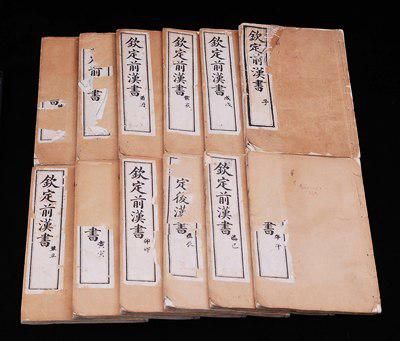 前
書
欽定前漢書
欽定前漢書 亥
欽定前漢書 戌
欽定前漢書 子
欽定前漢書 丑
書 寅
欽定前漢書 卯
定後漢書 辰
欽定前漢書 巳
書 午